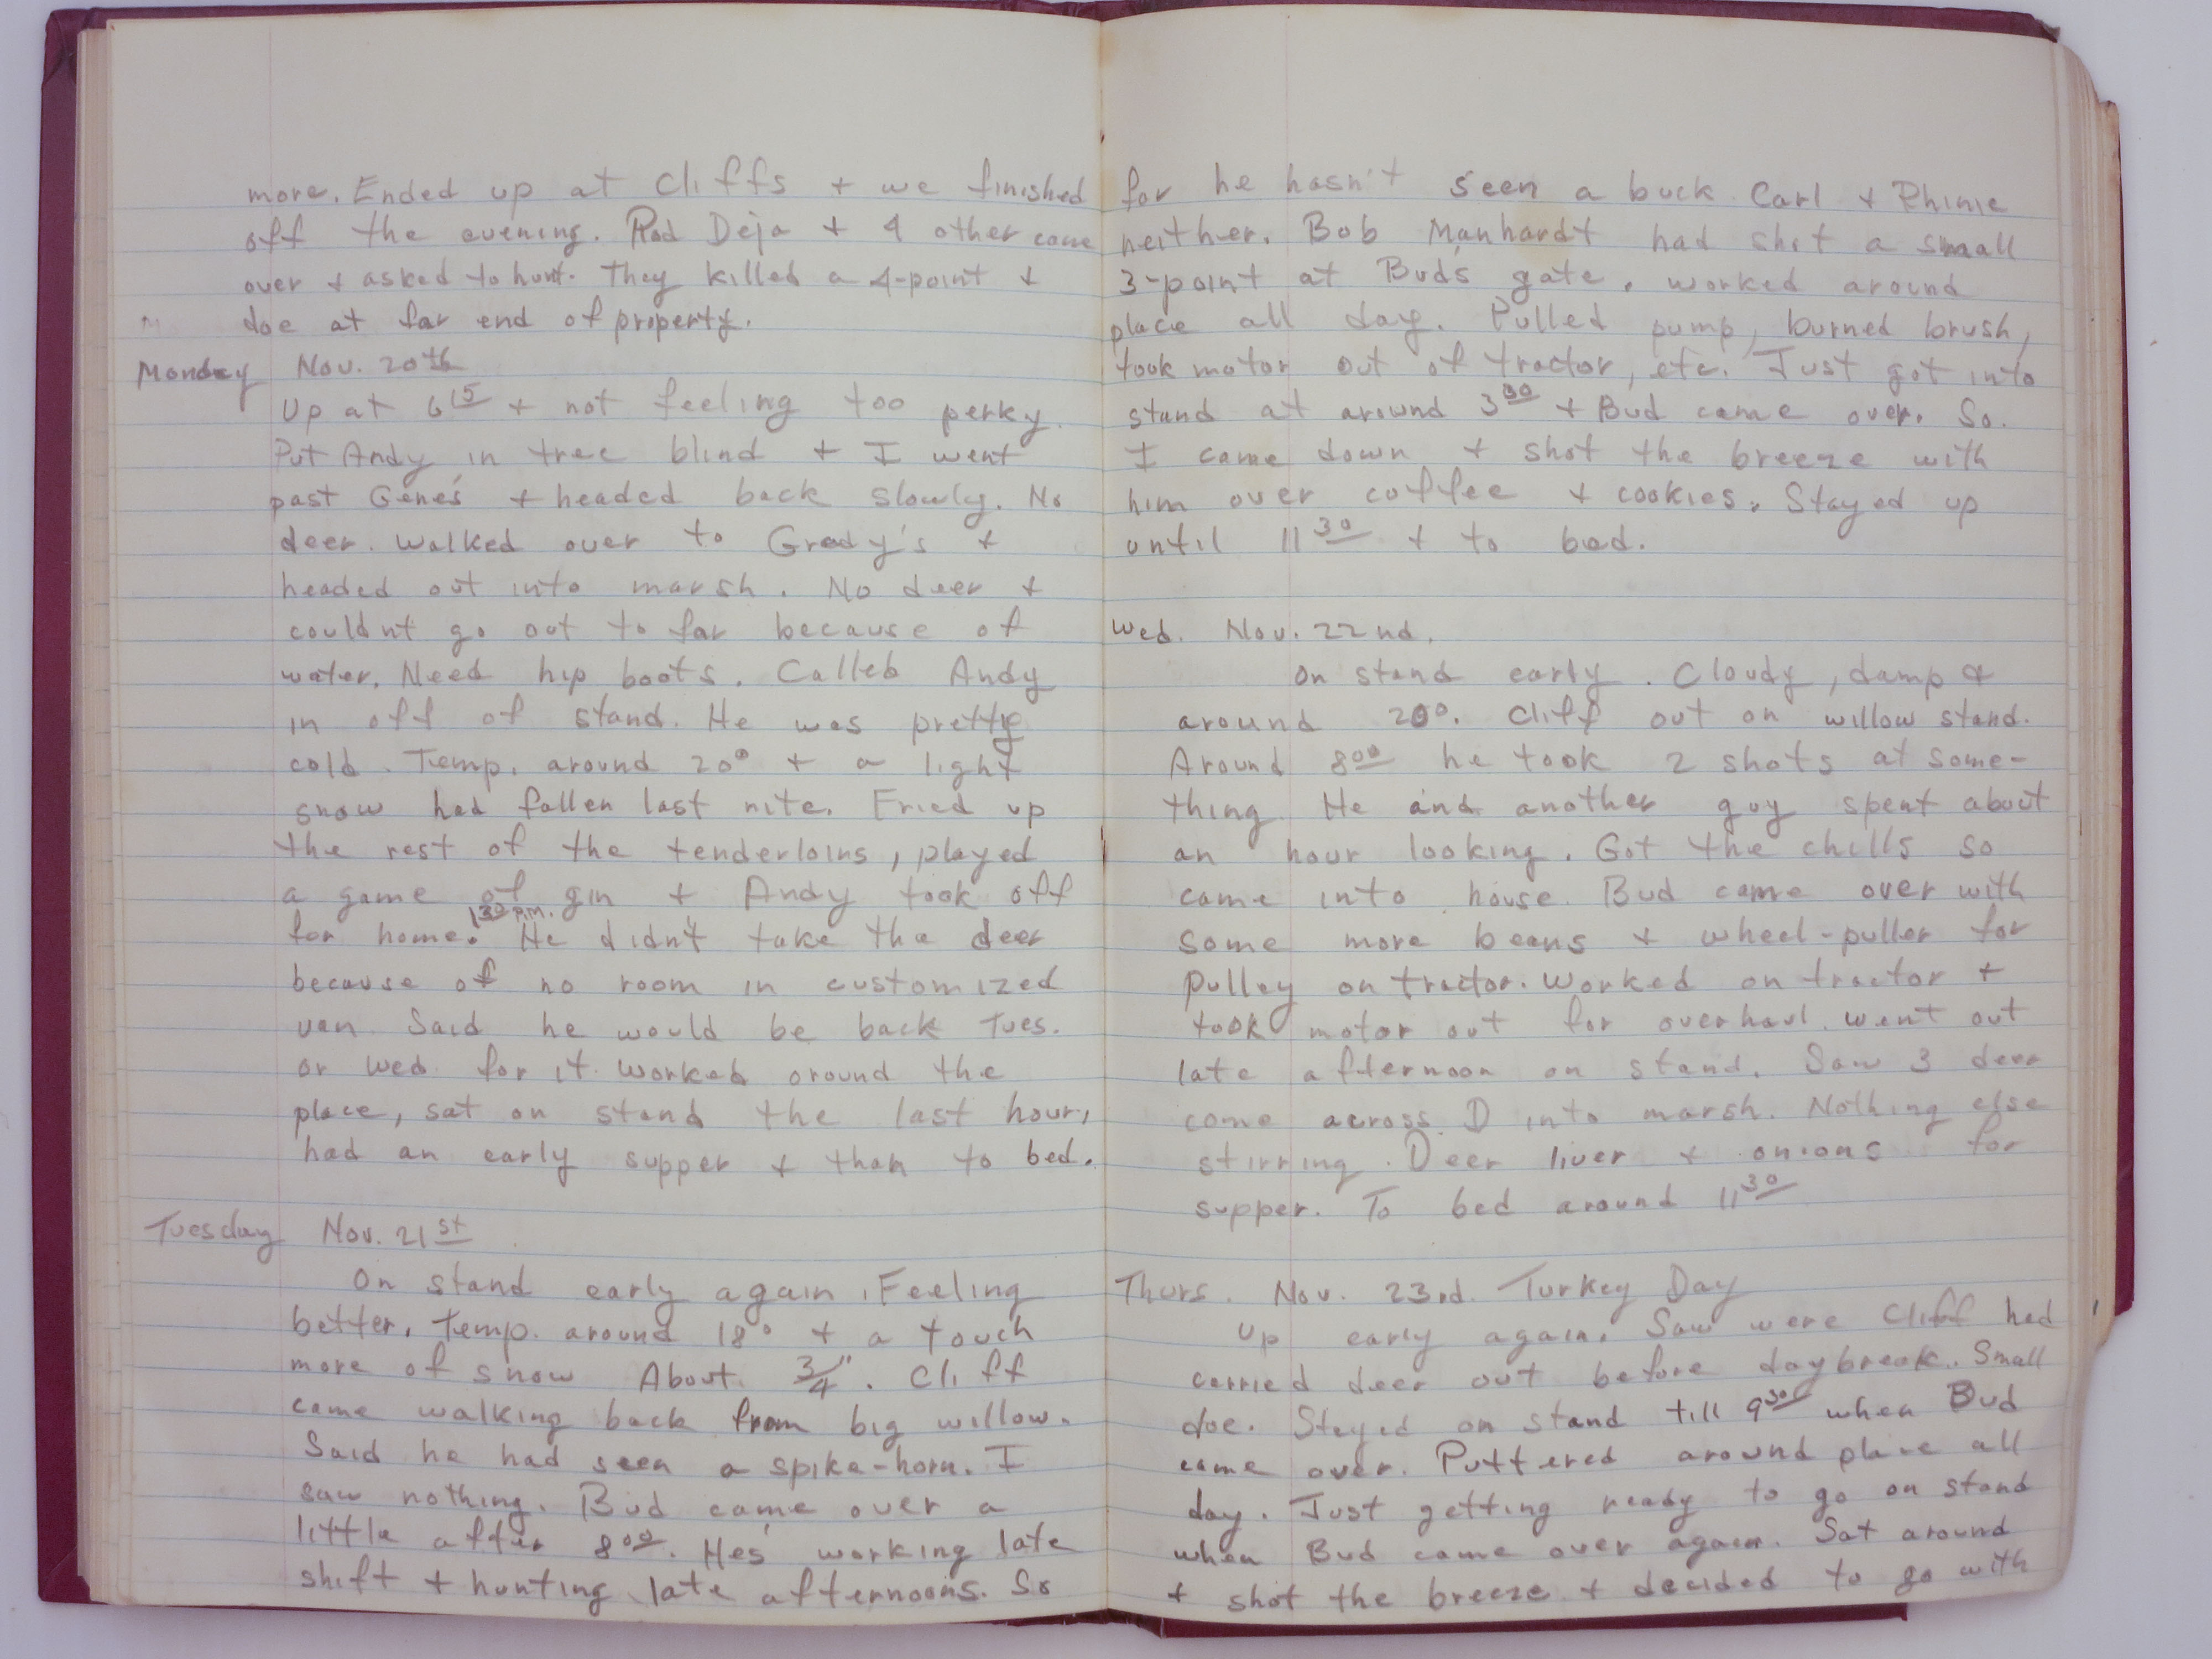 more. Ended up at Cliffs + we finished
off the evening. Rod Deja + 4 other came
over + asked to hunt. They killed a 4-point +
doe at far end of property.
Monday Nov. 20th
Up at 6 15 + not feeling too perky.
Put Andy in tree blind + I went
past Gene's + headed back slowly. No
deer. Walked over to Grody's +
headed out into marsh. No deer +
couldnt go out to far because of
water. Need hip boots. Called Andy
in off of stand. He was pretty
cold. Temp. around 20° + a light
snow had fallen last nite. Fried up
the rest of the tenderloins, played
a game of gin + Andy took off
for home. 1 30 p.m. He didn't take the deer
because of no room in customized
van. Said he would be back Tues.
or Wed. for it. Worked around the
place, sat on stand the last hour,
had an early supper + than to bed.
Tuesday Nov. 21st
On stand early again. Feeling
better. Temp. around 18° + a touch
more of snow About 3/4". Cliff
came walking back from big willow.
Said he had seen a spike-horn. I
saw nothing. Bud came over a
little after 8 00. He's working late
shift + hunting late afternoons. So
far he hasn't seen a buck Carl + Rhinie
neither. Bob Manhardt had shot a small
3-point at Bud's gate. Worked around
place all day. Pulled pump, burned brush,
took motor out of tractor, etc. Just got into
stand at around 3 30 + Bud came over. So.
I came down + shot the breeze with
him over coffee + cookies. Stayed up
until 11 30 + to bed.
Wed. Nov. 22nd.
On stand early. Cloudy, damp +
around 20°. Cliff out on willow stand.
Around 8 00 he took 2 shots at some-
thing. He and another guy spent about
an hour looking. Got the chills so
came into house. Bud came over with
some more beans + wheel-puller for
pulley on tractor. Worked on tractor +
took motor out for overhaul. Went out
late afternoon on stand. Saw 3 deer
come across D into marsh. Nothing else
stirring. Deer liver + onions for
supper. To bed around 11 30
Thurs. Nov. 23rd. Turkey Day
Up early again. Saw were Cliff had
carried deer out before daybreak. Small
doe. Stayed on stand till 9 30 when Bud
came over. Puttered around place all
day. Just getting ready to go on stand
when Bud came over again. Sat around
+ shot the breeze + decided to go with